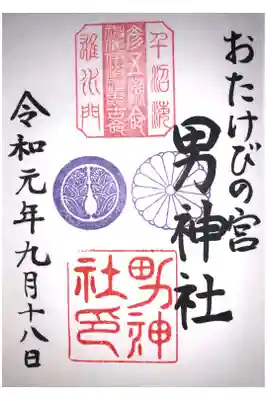 おたけびの宮
男神社
雄水門
男神社印
令和元年九月十八日